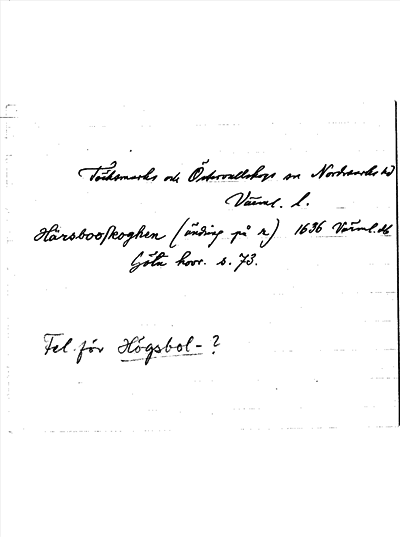 Töcksmarks och Östervallskogs sn Nordmarks hd
Värml. l.
Härsbooskoghen (ändring på r) 1636 Värml. hb
Göta hovr. s. 73.
Fel för Högsbol- ?